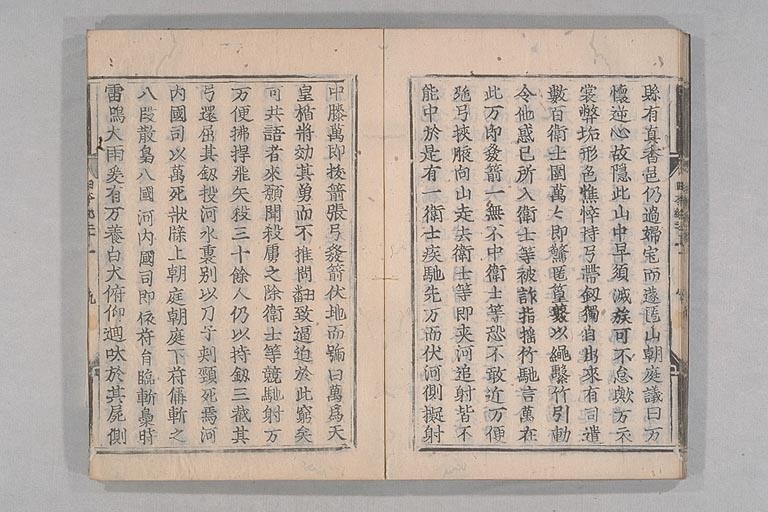 縣有真香邑仍過婦宅而遂匿山朝庭議曰万
懷逆心故隱此山中早須滅族可不怠歟万衣
裳弊垢形色憔悴持弓帶釼獨自出來有司遣
數百衛士圍萬々即驚匿篁藂以繩繫竹引動
令他惑己所入衛士等被詐指搖竹馳言萬在
此万即發箭一無不中衛士等恐不敢近万便
弛弓挾腋向山走去衛士等即夾河追射皆不
能中於是有一衛士疾馳先万而伏河側擬射
中膝萬即拔箭張弓發箭伏地而號曰萬為天
皇楯將効其勇而不推問翻致逼迫於此窮矣
可共語者來願聞殺虜之際衛士等競馳射万
万便拂捍飛矢殺三十餘人仍以持釼三截其
弓還屈其釼投河水裏別以刀子刺頸死焉河
内國司以萬死狀牒上朝庭朝庭下苻偁斬之
八段散梟八國河内國司即依苻旨臨斬梟時
雷鳴大雨爰有万養白犬俯仰迴吠於其屍側